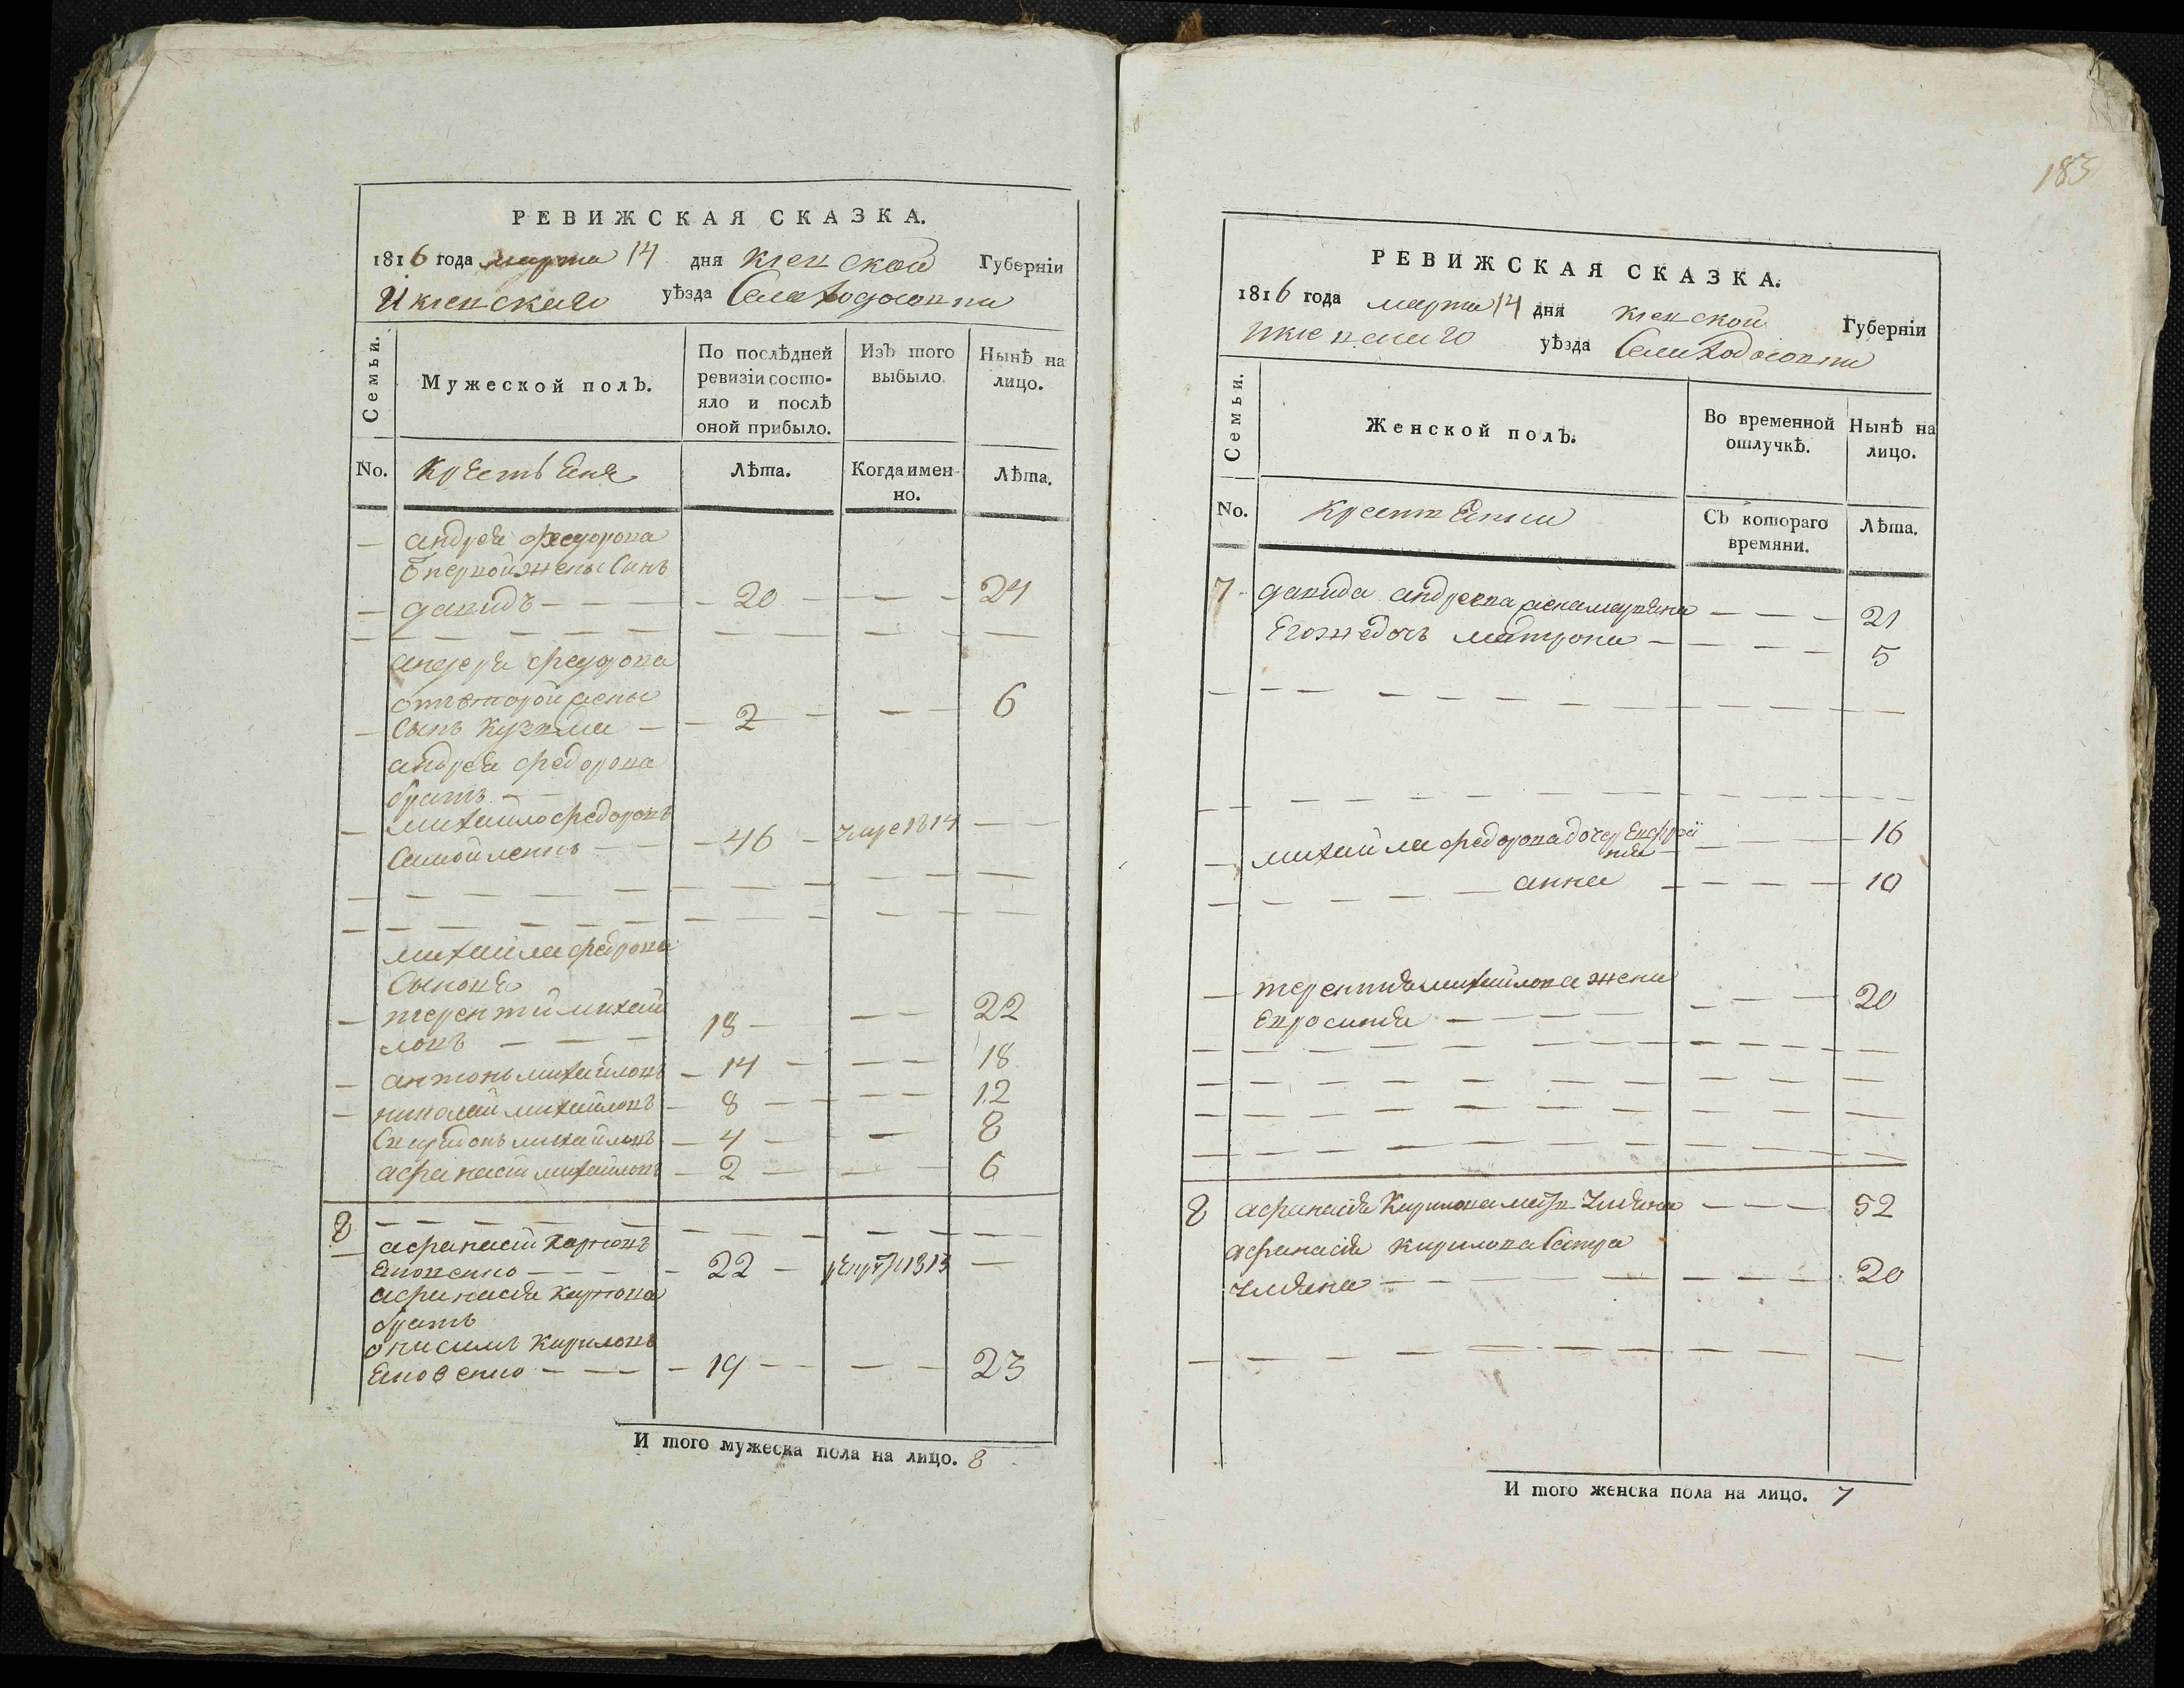 РЕВИЖСКАЯ СКАЗКА.
1816 года марта 14 дня киевской Губерніи
И киевскаго уѣзда Села Ходосовки
Семьи.
Мужеской полъ.
По послѣдней ревизіи состо-
яло и послѣ
оной прибыло.
Изъ того
выбыло.
Нынѣ на
лицо.
No.
Лѣта.
Когда имен-
но.
Лѣта.
андрея федорова
первой жены Синъ
давидъ 20 24
федорова
от второй жены
Сынъ Кузма 2 6
андрея федорова
братъ
михайло федоровъ
46 умре 1814
михайла федорова
Сыновя
терентий михай
ловъ 18 22
антонъ михайловъ 14 18
николай михайловъ 8 12
Спиридонъ михайловъ 4 8
афанасій михайловъ 2 6
8
афанасій
22 1813
афанасія
братъ
онисимъ Кириловъ
19 23
И того мужеска пола на лицо. 8
183
РЕВИЖСКАЯ СКАЗКА.
1816 года марта 14 дня киевской Губерніи
уѣзда Села Ходосовки
Семьи.
Женской полъ.
Во временной
отлучкѣ.
Нынѣ на
лицо.
No.
Съ котораго
времяни.
Лѣта.
7 давида андреева жена марина 21
Егожъ дочь матрона 5
михайла федорова дочер 16
анна 10
терентия михайлова жена
Евросиния 20
8 афанасія Кирилова 52
афанасія кирилова Сестра
20
И того женска пола на лицо. 7